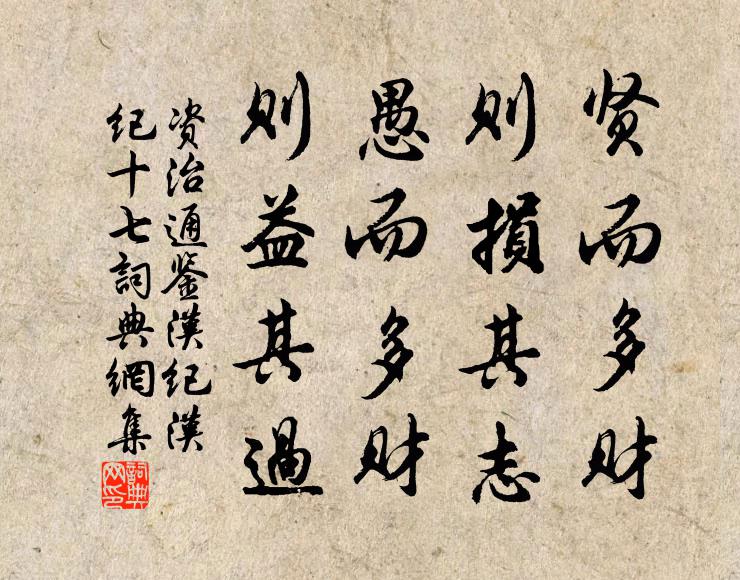 贤而多财
则損其志
愚而多财
则益其過
资治通鉴漢纪漢
纪十七詞典網集
詞典
网印